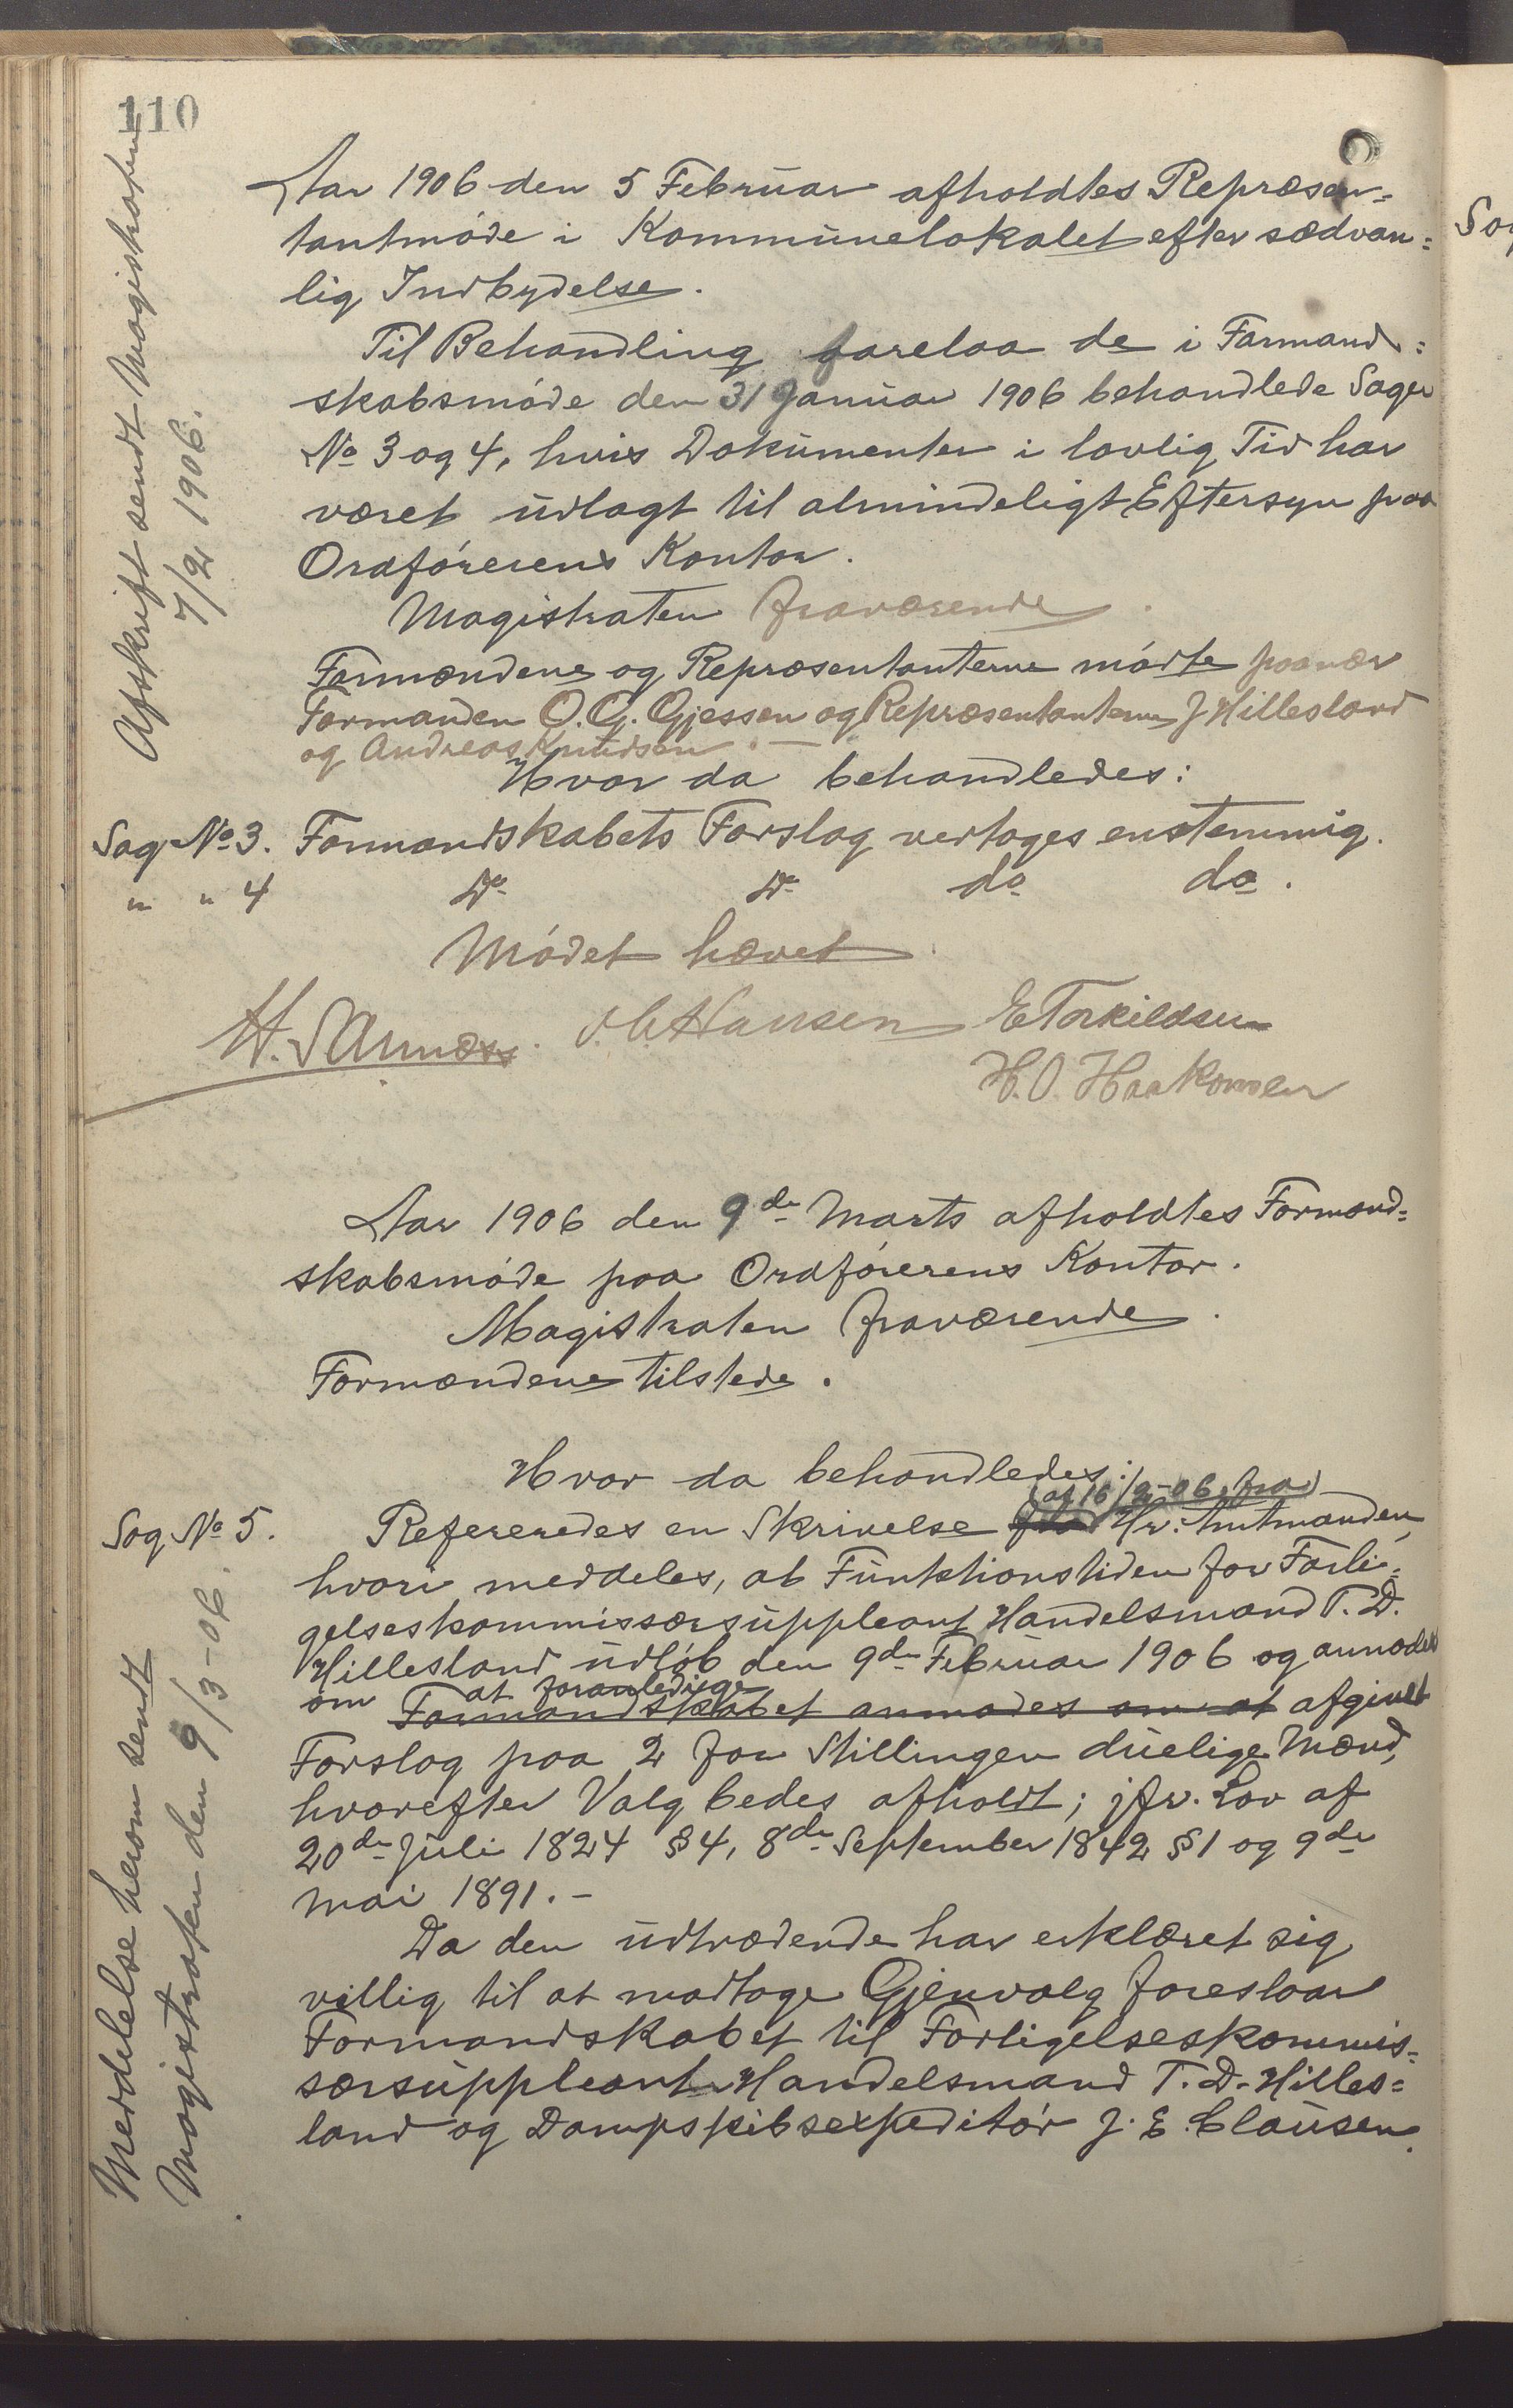 110
Afskrift sendt Magistraten
7/2 1906.
Aar 1906 den 5 Februar afholdtes Repræsen=
tantmøde i Kommunelokalet efter sædvan=
lig Indbydelse.
Til Behandling forelaa de i Formand=
skabsmøde den 31 Januar 1906 behandlede Sager
No 3 og 4, hvis Dokumenter i lovlig Tid har
været udlagt til almindeligt Eftersyn paa
Ordførerens Kontor.
Magistraten fraværende.
Formændene og Repræsentanterne mødte paanær
Formanden O. G. Gjessen og Repræsentanterne J Hillesland
og Andreas Knudsen. —
Hvor da behandledes:
Sag No 3. Formandskabets Forslag vertoges enstemmig.
" " 4 Do Do do do.
Mødet hævet
H. Sannæss. O. C. Hansen E Torkildsen
H. O. Haakonsen
Aar 1906 den 9de Marts afholdtes Formand=
skabsmøde paa Ordførerens Kontor.
Magistraten fraværende.
Formændene tilstede.
Hvor da behandledes:
(af 16/2-06, fra)
Sag No 5. Refereredes en Skrivelse fra Hr. Amtmanden,
hvori meddeles, at Funktionstiden for Forli=
gelseskommissærsuppleant Handelsmand T. D.
Hillesland udløb den 9de Februar 1906 og anmodes
om at foranledige
Formandskabet anmodes om at afgivet
Forslag paa 2 for Stillingen duelige Mænd,
hvorefter Valg bedes afholdt; jfr. Lov af
20de Juli 1824 § 4, 8de September 1842 § 1 og 9de
Mai 1891. -
Da den udtrædende har erklæret sig
villig til at modtage Gjenvalg foreslaar
Formandskabet til Forligelseskommis=
særsuppleant Handelsmand T. D. Hilles=
land og Dampskibsexpeditør J. E. Clausen.
Meddelelse herom sendt
Magistraten den 9/3-06.
Sag